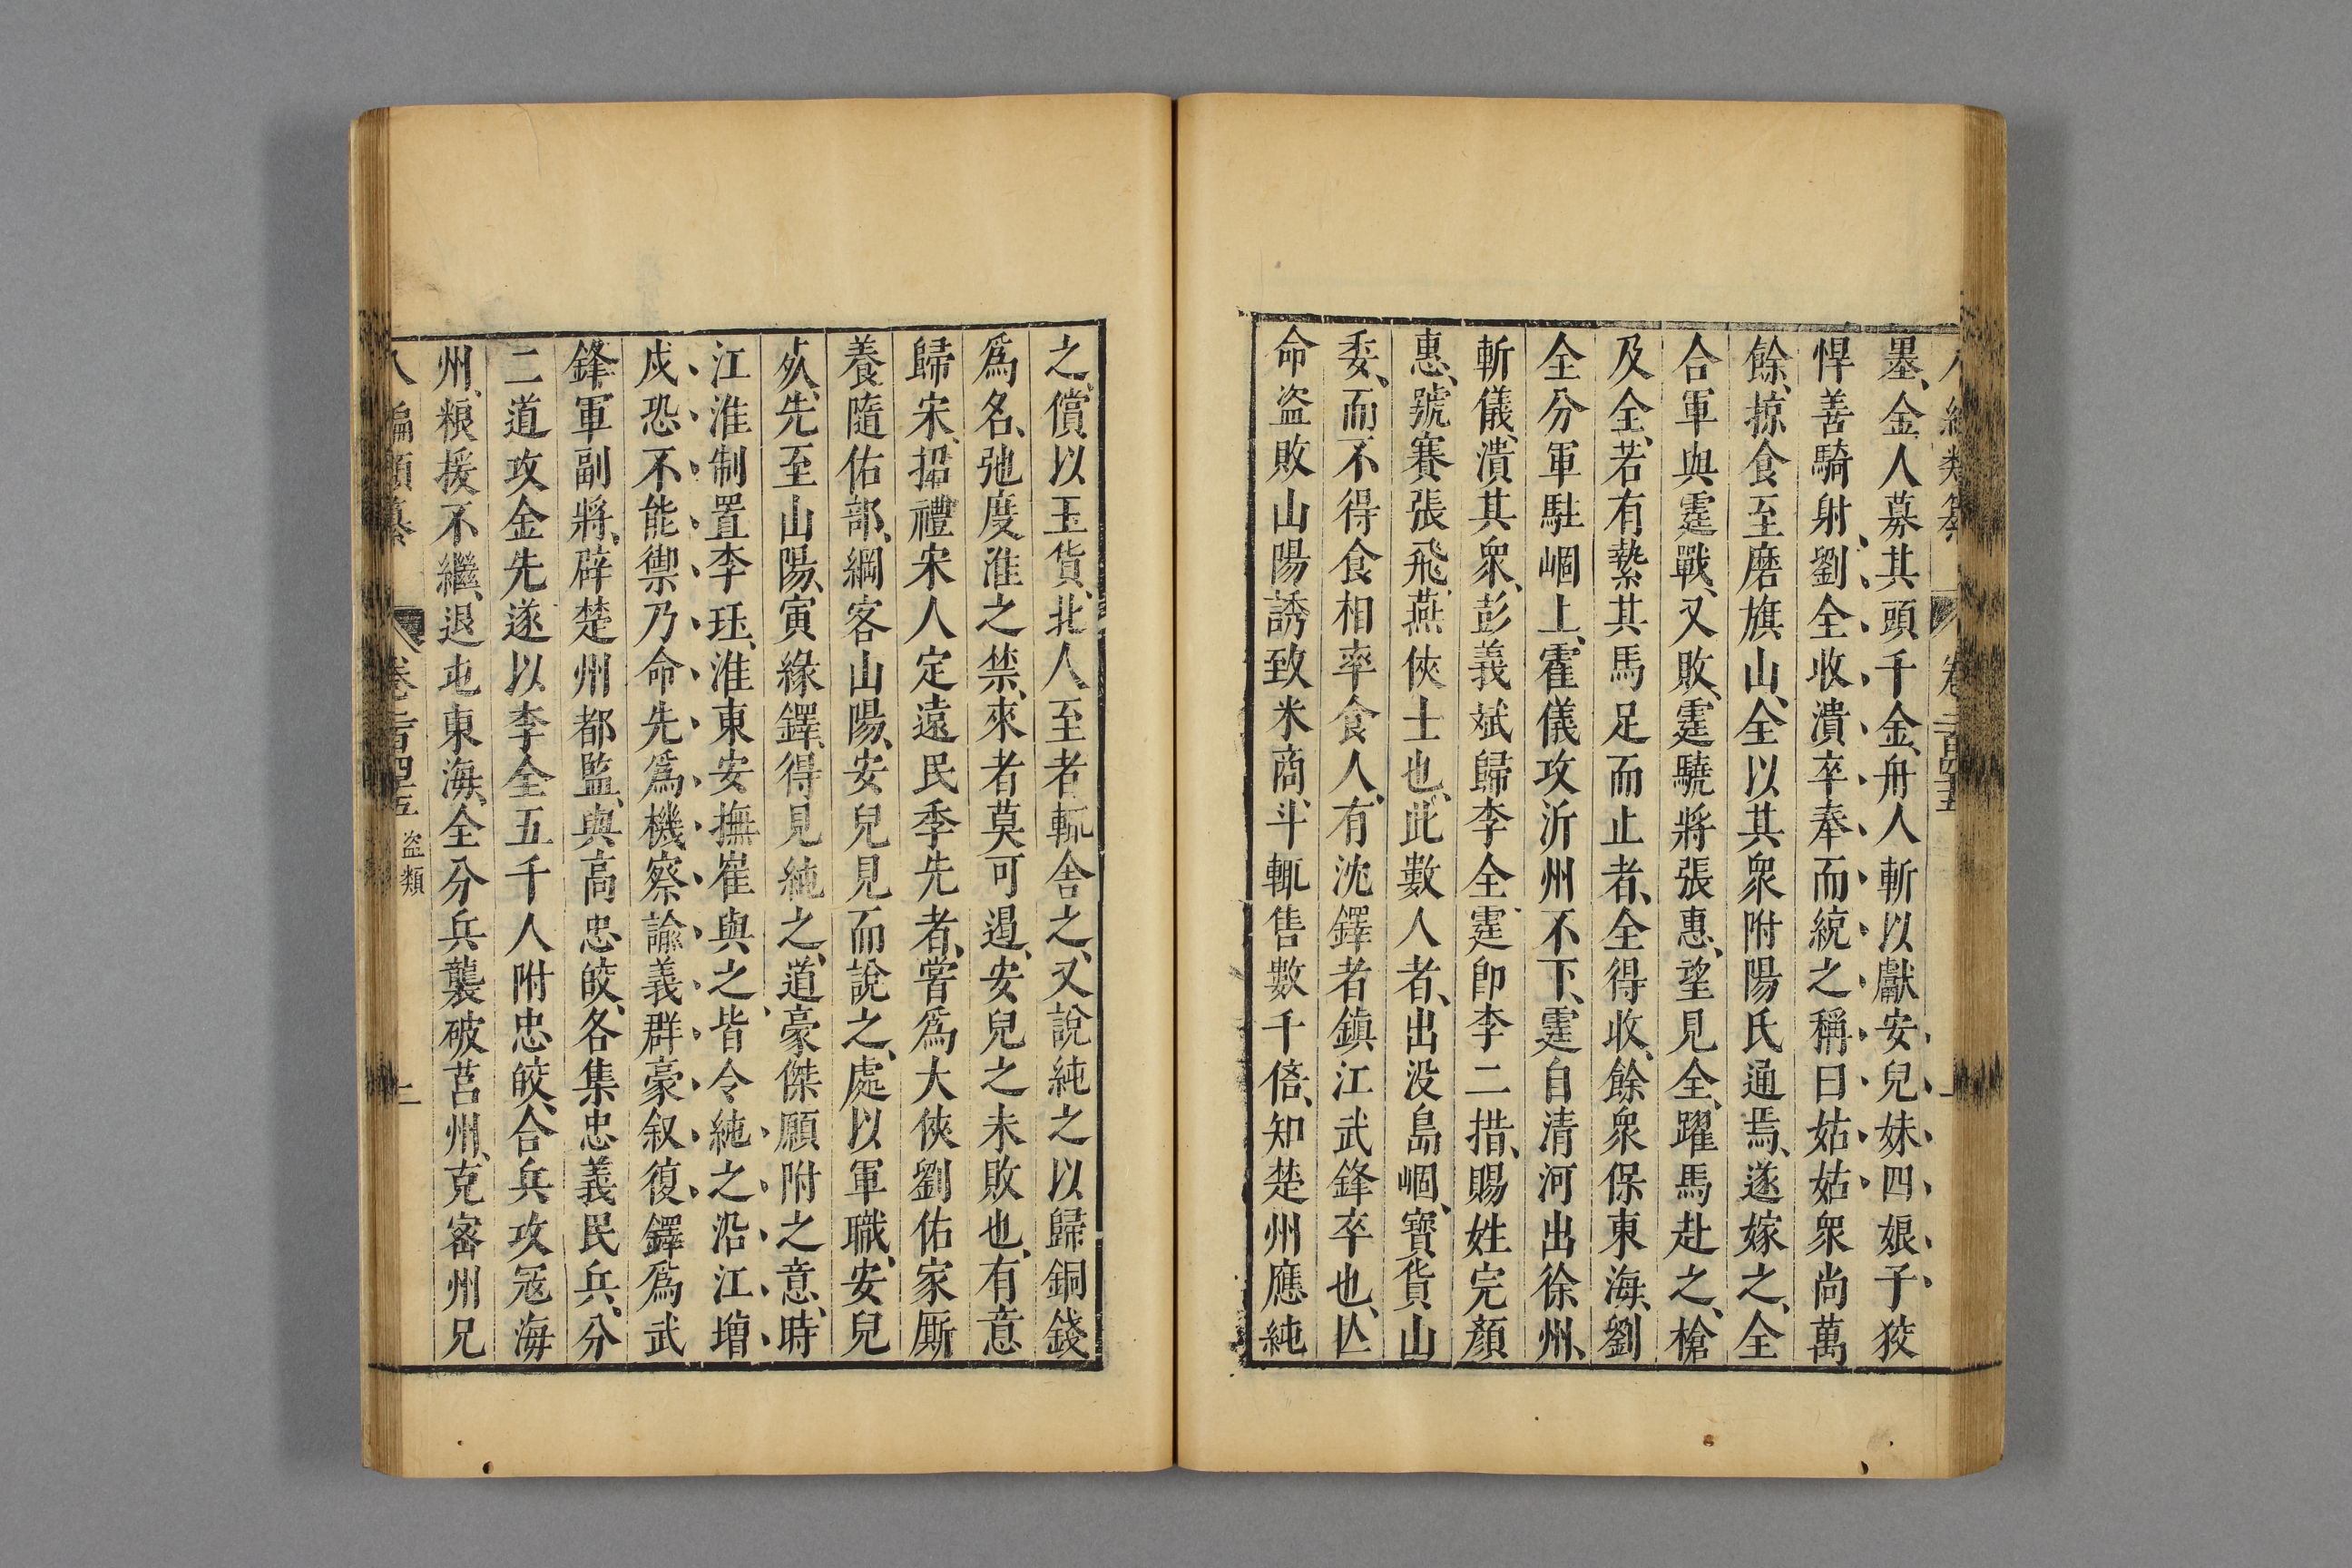 八編類纂 卷二百四十五
墨、金人募其頭千金、舟人斬以獻安兒妹四娘子狡
悍善騎射、劉全收潰卒奉而統之稱曰姑姑衆尚萬
餘、掠食至磨旗山、全以其衆附陽氏通焉、遂嫁之、全
合軍與霆戰、又敗、霆驍將張惠、望見全、躍馬赴之、槍
及全、若有縶其馬足而止者、全得收、餘衆保東海、劉
全分軍駐崓上、霍儀攻沂州不下、霆自清河出徐州、
斬儀、潰其衆、彭義斌歸李全、霆卽李二措、賜姓完顏
惠、號賽張飛、燕俠士也、此數人者、出没島崓、寶貨山
委、而不得食相率食人、有沈鐸者鎮江武鋒卒也、亾
命盜敗山陽誘致米商、斗輒售數千倍、知楚州應純
之、償以玉貨、北人至者輒舍之、又說純之以歸銅錢
爲名、弛度淮之禁、來者莫可遏、安兒之未敗也、有意
歸宋、招禮宋人定遠民季先者、嘗爲大俠劉佑家厮
養隨佑部、綱客山陽、安兒見而說之、處以軍職、安兒
歿、先至山陽、寅緣鐸、得見純之、道豪傑願附之意、時
江淮制置李珏、淮東安撫崔與之、皆令純之沿江增
戍、恐不能禦乃命先爲機察諭義群豪叙復鐸爲武
鋒軍副將、辟楚州都監、與高忠皎、各集忠義民兵、分
二道攻金先遂以李全五千人附忠皎、合兵攻冦海
州、粮援不繼、退屯東海、全分兵襲破莒州、克密州兄
八編類纂 卷二百四十五 盜類 二